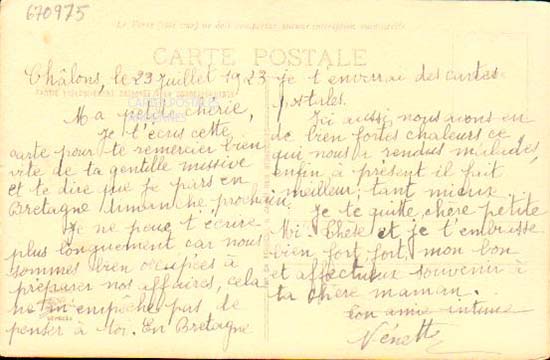 670975
CARTE POSTALE
Châlons, le 23 Juillet 1923
Ma petite chérie,
Je t'écris cette
carte pour te remercier bien
vite de ta gentille missive
et te dire que je pars en
Bretagne dimanche prochain.
Je ne peux t'écrire
plus longuement car nous
sommes bien occupées à
préparer nos affaires, cela
ne m'empêche pas de
penser à toi. En Bretagne
Je t'enverrai des cartes
postales.
Ici aussi, nous avons eu
de bien fortes chaleurs ce
qui nous a rendus malades,
enfin à présent il fait
meilleur, tant mieux.
Je te quitte, chère petite
Mi-Chère et je t'embrasse
bien fort, fort, mon bon
et affectueux souvenir à
ta chère maman.
Ton amie intime
Nénette